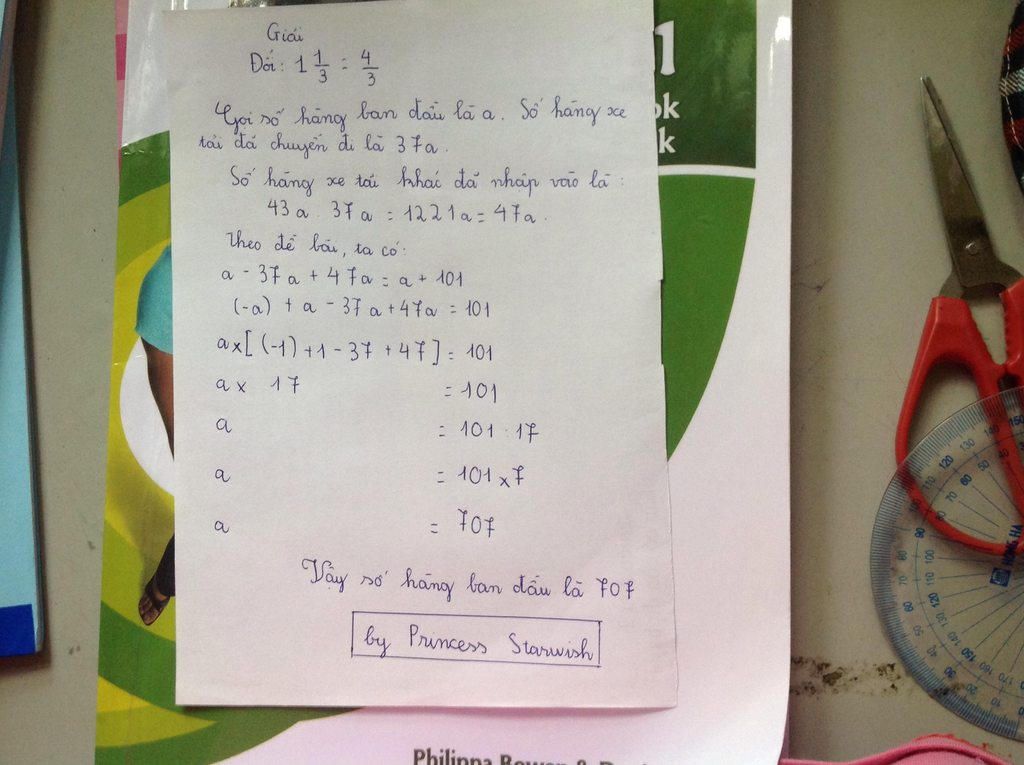 Giải
Đổi: 1 1/3 = 4/3
Gọi số hàng ban đầu là a. Số hàng xe
tải đã chuyển đi là 37a.
Số hàng xe tải khác đã nhập vào là:
43a . 37a = 1221a = 47a.
Theo đề bài, ta có:
a - 37a + 47a = a + 101
(-a) + a - 37a + 47a = 101
a x [(-1) + 1 - 37 + 47] = 101
a x 17 = 101
a = 101 : 17
a = 101 x 7
a = 707
Vậy số hàng ban đầu là 707
by Princess Starwish
1
ok
k
Philippa Bowen &
HONG HA